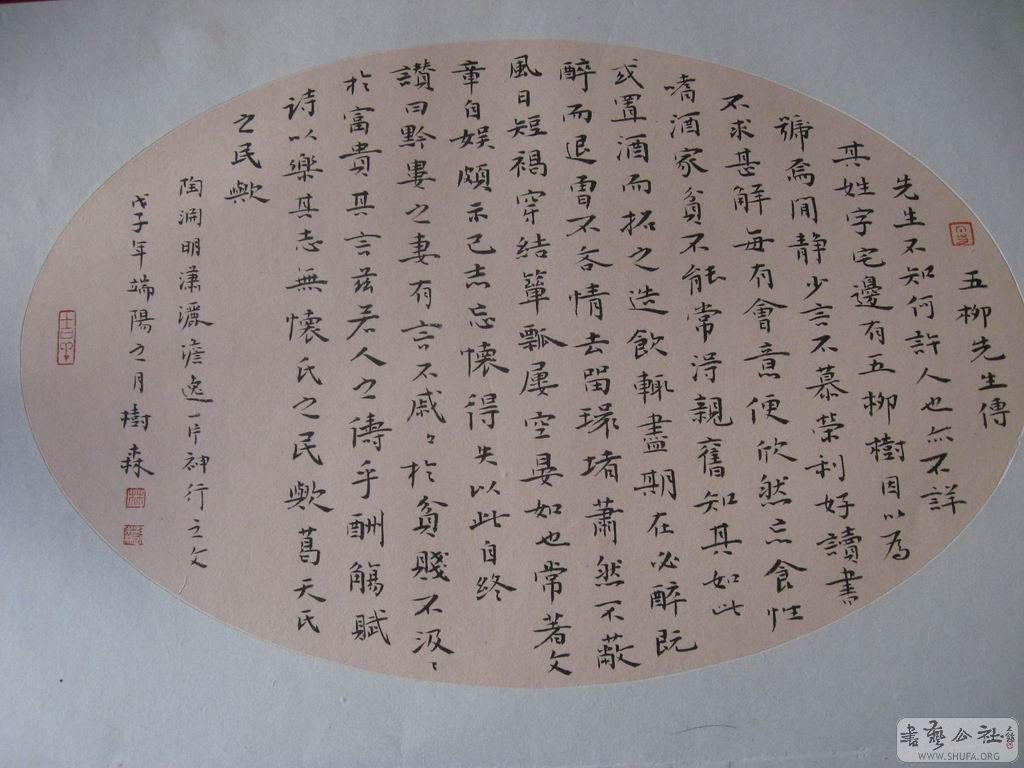 五柳先生傳
先生不知何許人也亦不詳
其姓字宅邊有五柳樹因以為
號焉閒静少言不慕榮利好讀書
不求甚解每有會意便欣然忘食性
嗜酒家貧不能常得親舊知其如此
或置酒而招之造飲輒盡期在必醉既
醉而退曾不吝情去留環堵蕭然不蔽
風日短褐穿結簞瓢屢空晏如也常著文
章自娱頗示己志忘懷得失以此自終
讚曰黔婁之妻有言不戚々於貧賤不汲々
於富貴其言茲若人之儔乎酬觴賦
詩以樂其志無懷氏之民歟葛天氏
之民歟
陶淵明瀟灑澹逸一片神行之文
戊子年端陽之月樹森
書藝公社
WWW.SHUFA.ORG